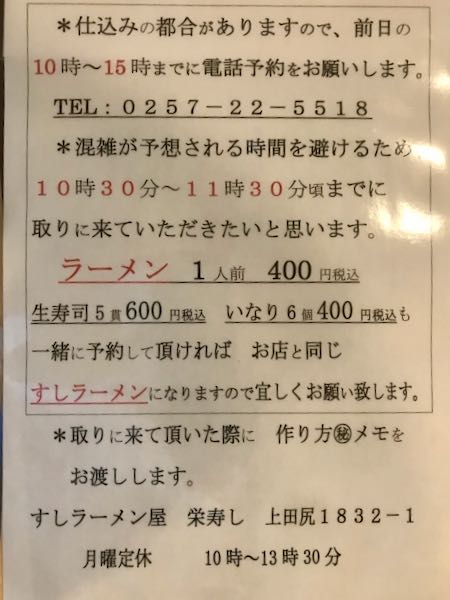 ＊仕込みの都合がありますので、前日の
10時～15時までに電話予約をお願いします。
TEL：０２５７－２２－５５１８
＊混雑が予想される時間を避けるため、
１０時３０分～１１時３０分頃までに
取りに来ていただきたいと思います。
ラーメン　１人前　400円税込
生寿司５貫600円税込　いなり６個400円税込も
一緒に予約して頂ければ　お店と同じ
すしラーメンになりますので宜しくお願い致します。
＊取りに来て頂いた際に　作り方㊙メモを
お渡しします。
すしラーメン屋　栄寿し　上田尻１８３２－１
月曜定休　10時～13時30分